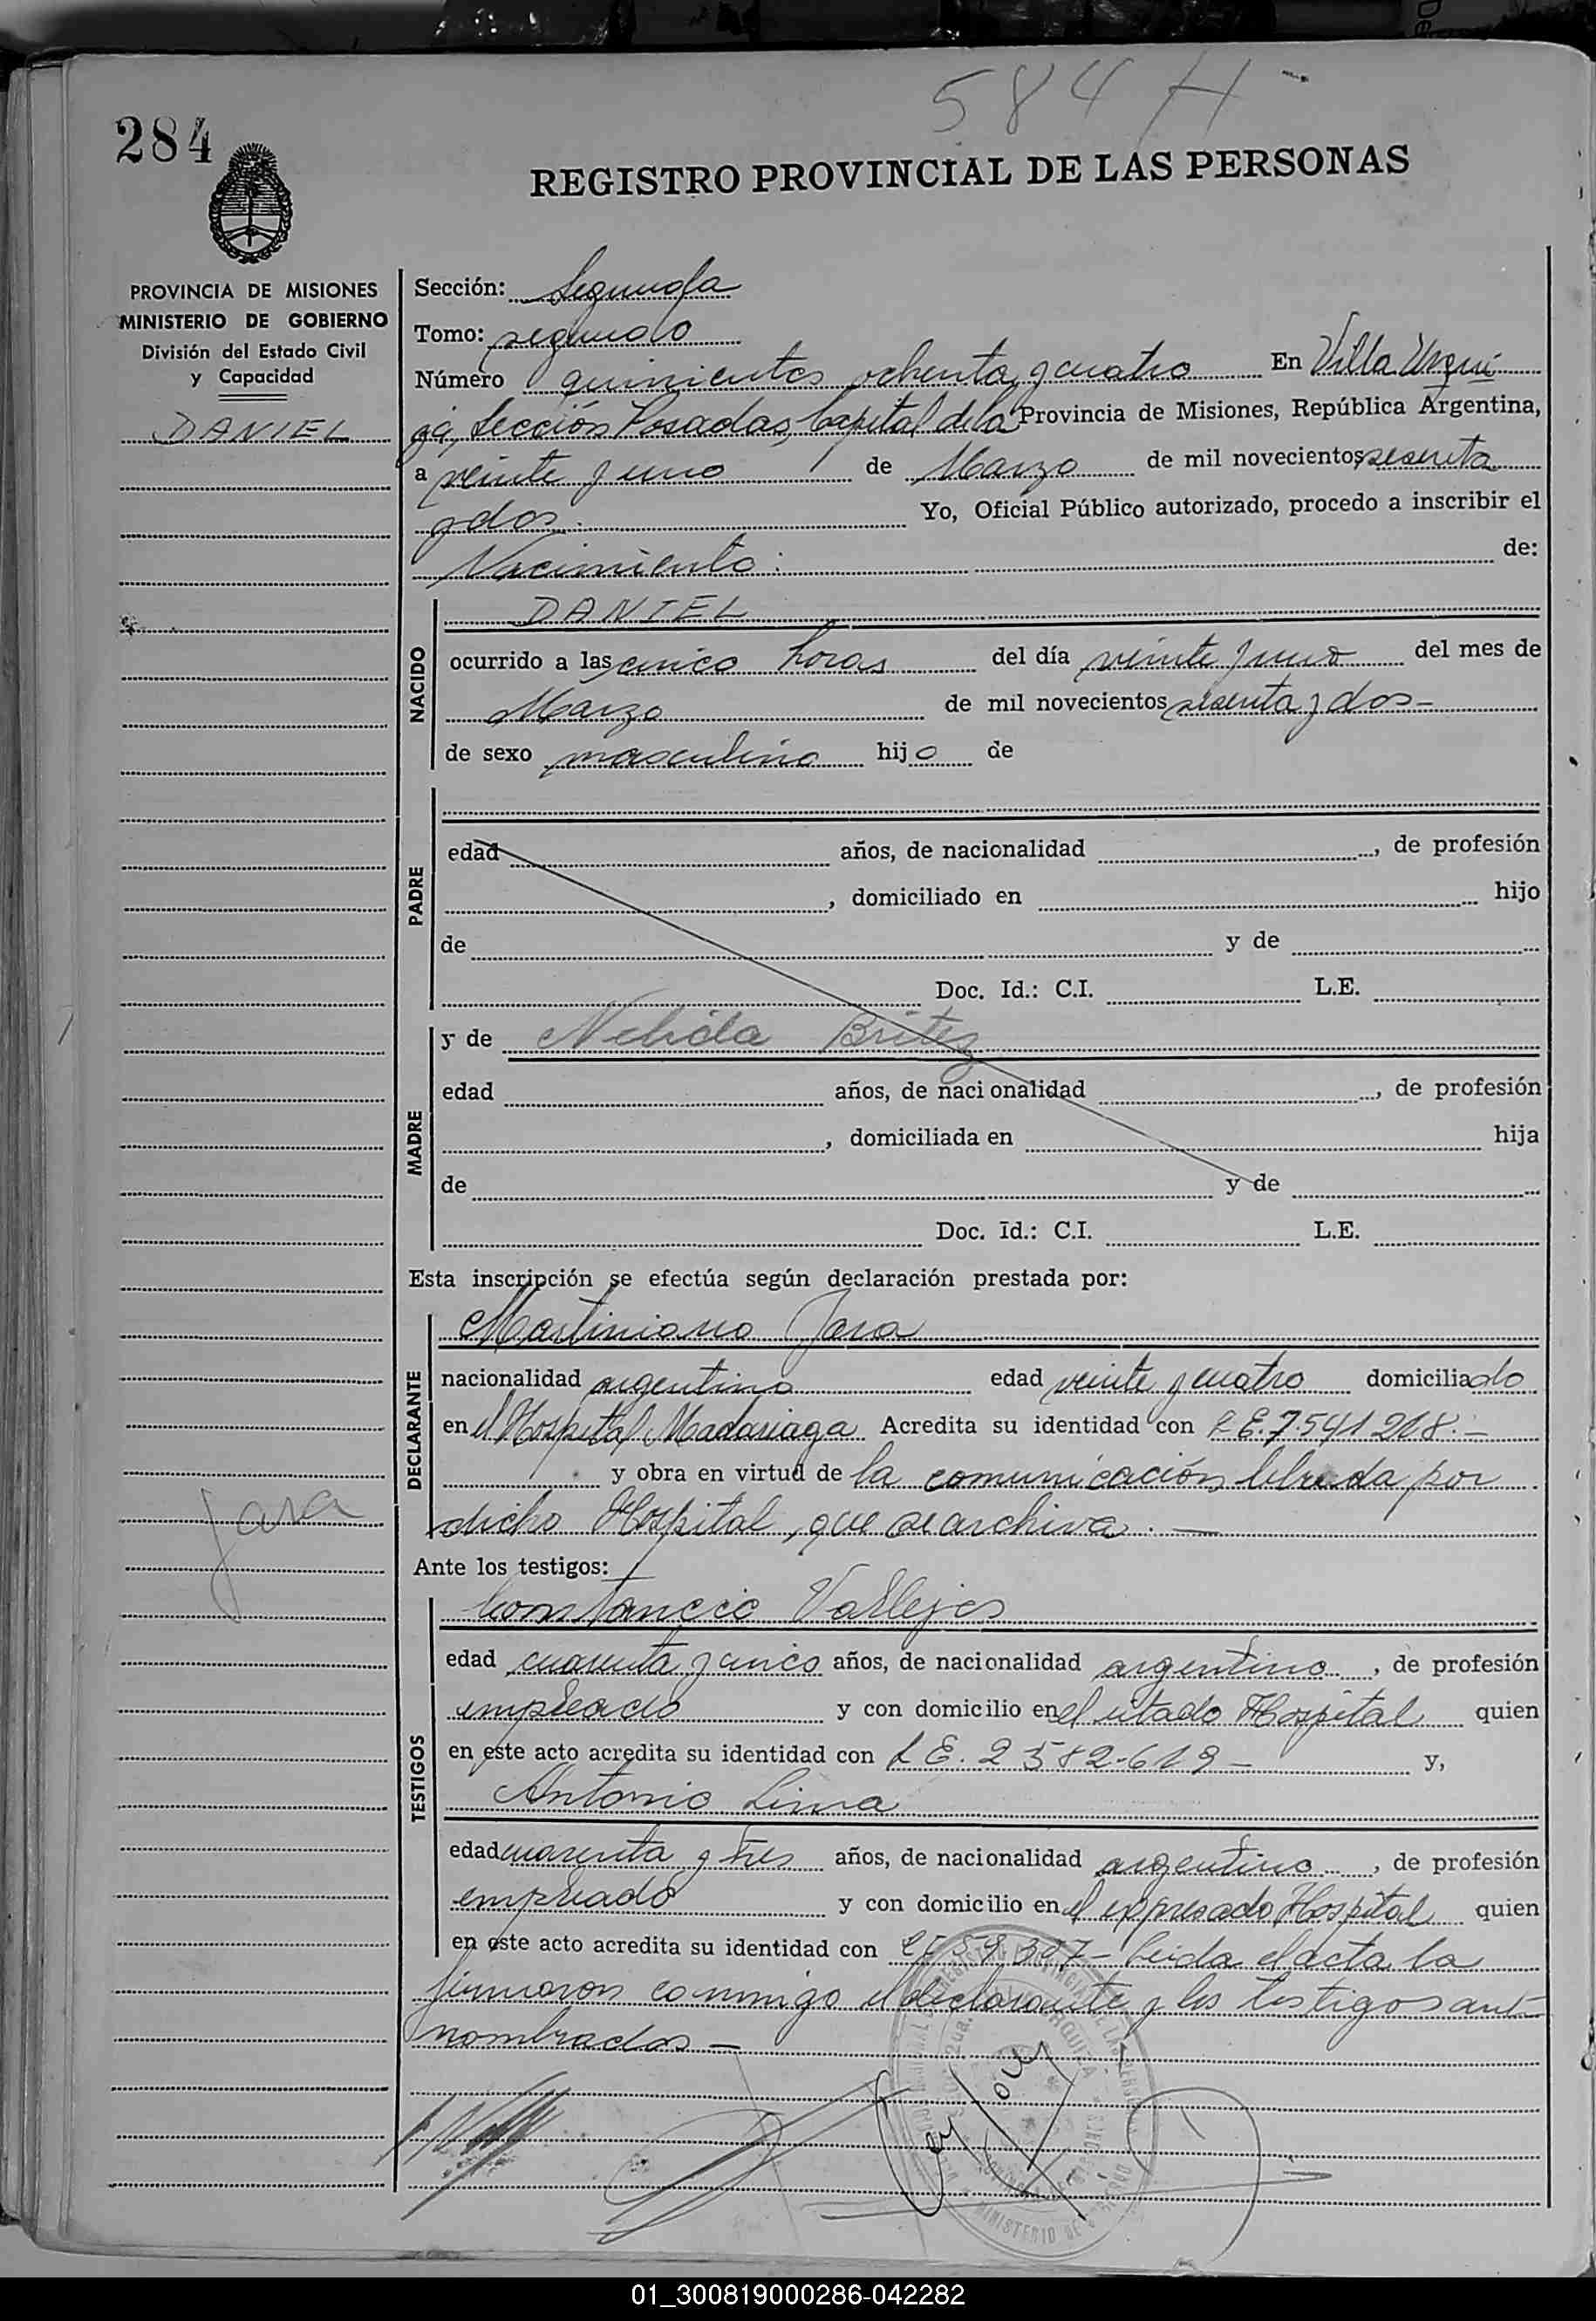 584 H -
284
REGISTRO PROVINCIAL DE LAS PERSONAS
PROVINCIA DE MISIONES
MINISTERIO DE GOBIERNO
División del Estado Civil
y Capacidad
DANIEL
Jara
Sección: Segunda
Tomo: segundo
Número quinientos ochenta y cuatro En Villa Urqui
za, Sección Posadas, Capital de la Provincia de Misiones, República Argentina,
a veinte y uno de Marzo de mil novecientos sesenta
y dos. Yo, Oficial Público autorizado, procedo a inscribir el
Nacimiento: de:
NACIDO
DANIEL
ocurrido a las cinco horas del día veinte y uno del mes de
Marzo de mil novecientos sesenta y dos -
de sexo masculino hijo de
PADRE
edad años, de nacionalidad , de profesión
, domiciliado en hijo
de y de
Doc. Id.: C.I. L.E.
MADRE
y de Nelida Britez
edad años, de nacionalidad , de profesión
, domiciliada en hija
de y de
Doc. Id.: C.I. L.E.
Esta inscripción se efectúa según declaración prestada por:
DECLARANTE
Martiniano Jara
nacionalidad argentino edad veinte y cuatro domiciliado
en el Hospital Madariaga Acredita su identidad con L.E. 7.541.218. -
y obra en virtud de la comunicación librada por
dicho Hospital, que se archiva. -
Ante los testigos:
TESTIGOS
Constancio Vallejos
edad cuarenta y cinco años, de nacionalidad argentino , de profesión
empleado y con domicilio en el citado Hospital quien
en este acto acredita su identidad con L.E. 2582-619 - y,
Antonio Lima
edad cuarenta y tres años, de nacionalidad argentino , de profesión
empleado y con domicilio en el expresado Hospital quien
en este acto acredita su identidad con Leida el acta la
firmaron conmigo el declarante y los testigos ant
nombrados -
01_300819000286-042282